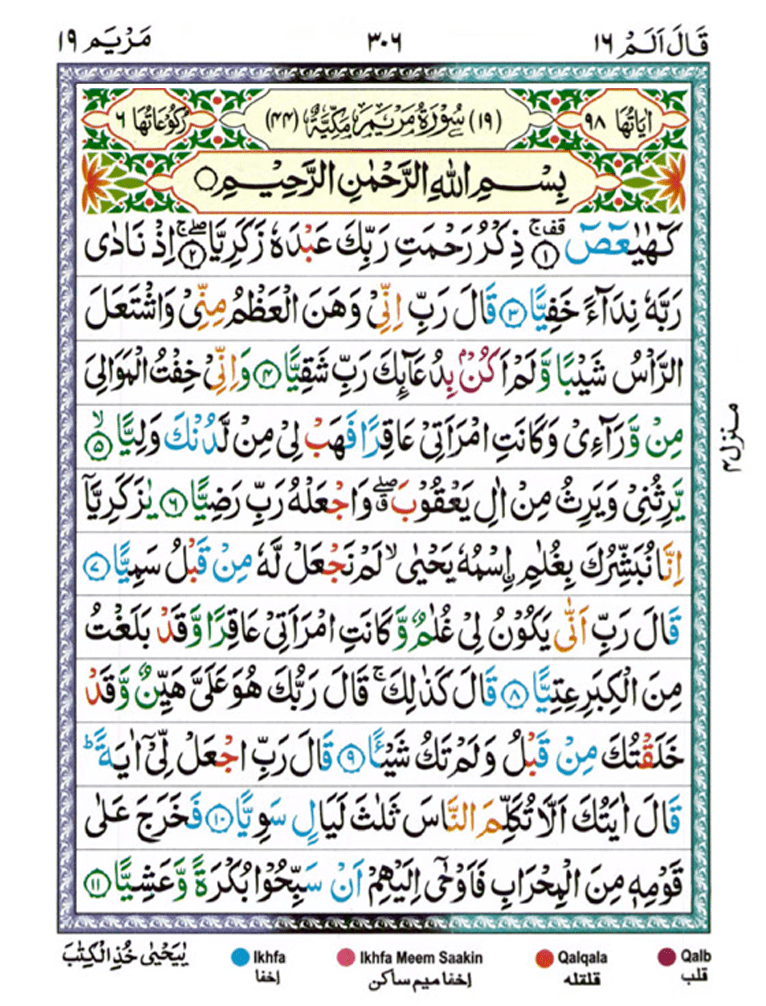 قَالَ اَلَمْ ١٦ ٣٠٦ مَرْيَم ١٩
اٰيَاتُهَا ٩٨ (١٩) سُوْرَةُ مَرْيَمَ مَكِّيَّةٌ (٤٤) رُكُوْعَاتُهَا ٦
بِسْمِ اللّٰهِ الرَّحْمٰنِ الرَّحِيْمِ
كٓهٰيٰعٓصٓ ۚ ١ ذِكْرُ رَحْمَتِ رَبِّكَ عَبْدَهٗ زَكَرِيَّا ۖۚ ٢ اِذْ نَادٰى
رَبَّهٗ نِدَآءً خَفِيًّا ٣ قَالَ رَبِّ اِنِّيْ وَهَنَ الْعَظْمُ مِنِّيْ وَاشْتَعَلَ
الرَّاْسُ شَيْبًا وَّلَمْ اَكُنْۢ بِدُعَآئِكَ رَبِّ شَقِيًّا ٤ وَاِنِّيْ خِفْتُ الْمَوَالِيَ
مِنْ وَّرَآءِيْ وَكَانَتِ امْرَاَتِيْ عَاقِرًا فَهَبْ لِيْ مِنْ لَّدُنْكَ وَلِيًّا ۙ ٥
يَّرِثُنِيْ وَيَرِثُ مِنْ اٰلِ يَعْقُوْبَ ۖۗ وَاجْعَلْهُ رَبِّ رَضِيًّا ٦ يٰزَكَرِيَّآ
اِنَّا نُبَشِّرُكَ بِغُلٰمِ ࣙاسْمُهٗ يَحْيٰى ۙ لَمْ نَجْعَلْ لَّهٗ مِنْ قَبْلُ سَمِيًّا ٧
قَالَ رَبِّ اَنّٰى يَكُوْنُ لِيْ غُلٰمٌ وَّكَانَتِ امْرَاَتِيْ عَاقِرًا وَّقَدْ بَلَغْتُ
مِنَ الْكِبَرِ عِتِيًّا ٨ قَالَ كَذٰلِكَ ۚ قَالَ رَبُّكَ هُوَ عَلَيَّ هَيِّنٌ وَّقَدْ
خَلَقْتُكَ مِنْ قَبْلُ وَلَمْ تَكُ شَيْـًٔا ٩ قَالَ رَبِّ اجْعَلْ لِّيْٓ اٰيَةً ؕ
قَالَ اٰيَتُكَ اَلَّا تُكَلِّمَ النَّاسَ ثَلٰثَ لَيَالٍ سَوِيًّا ١٠ فَخَرَجَ عَلٰى
قَوْمِهٖ مِنَ الْمِحْرَابِ فَاَوْحٰٓى اِلَيْهِمْ اَنْ سَبِّحُوْا بُكْرَةً وَّعَشِيًّا ١١
منزل ٤
يٰيَحْيٰى خُذِ الْكِتٰبَ Ikhfa Ikhfa Meem Saakin Qalqala Qalb
إخفا إخفا ميم ساكن قلقله قلب